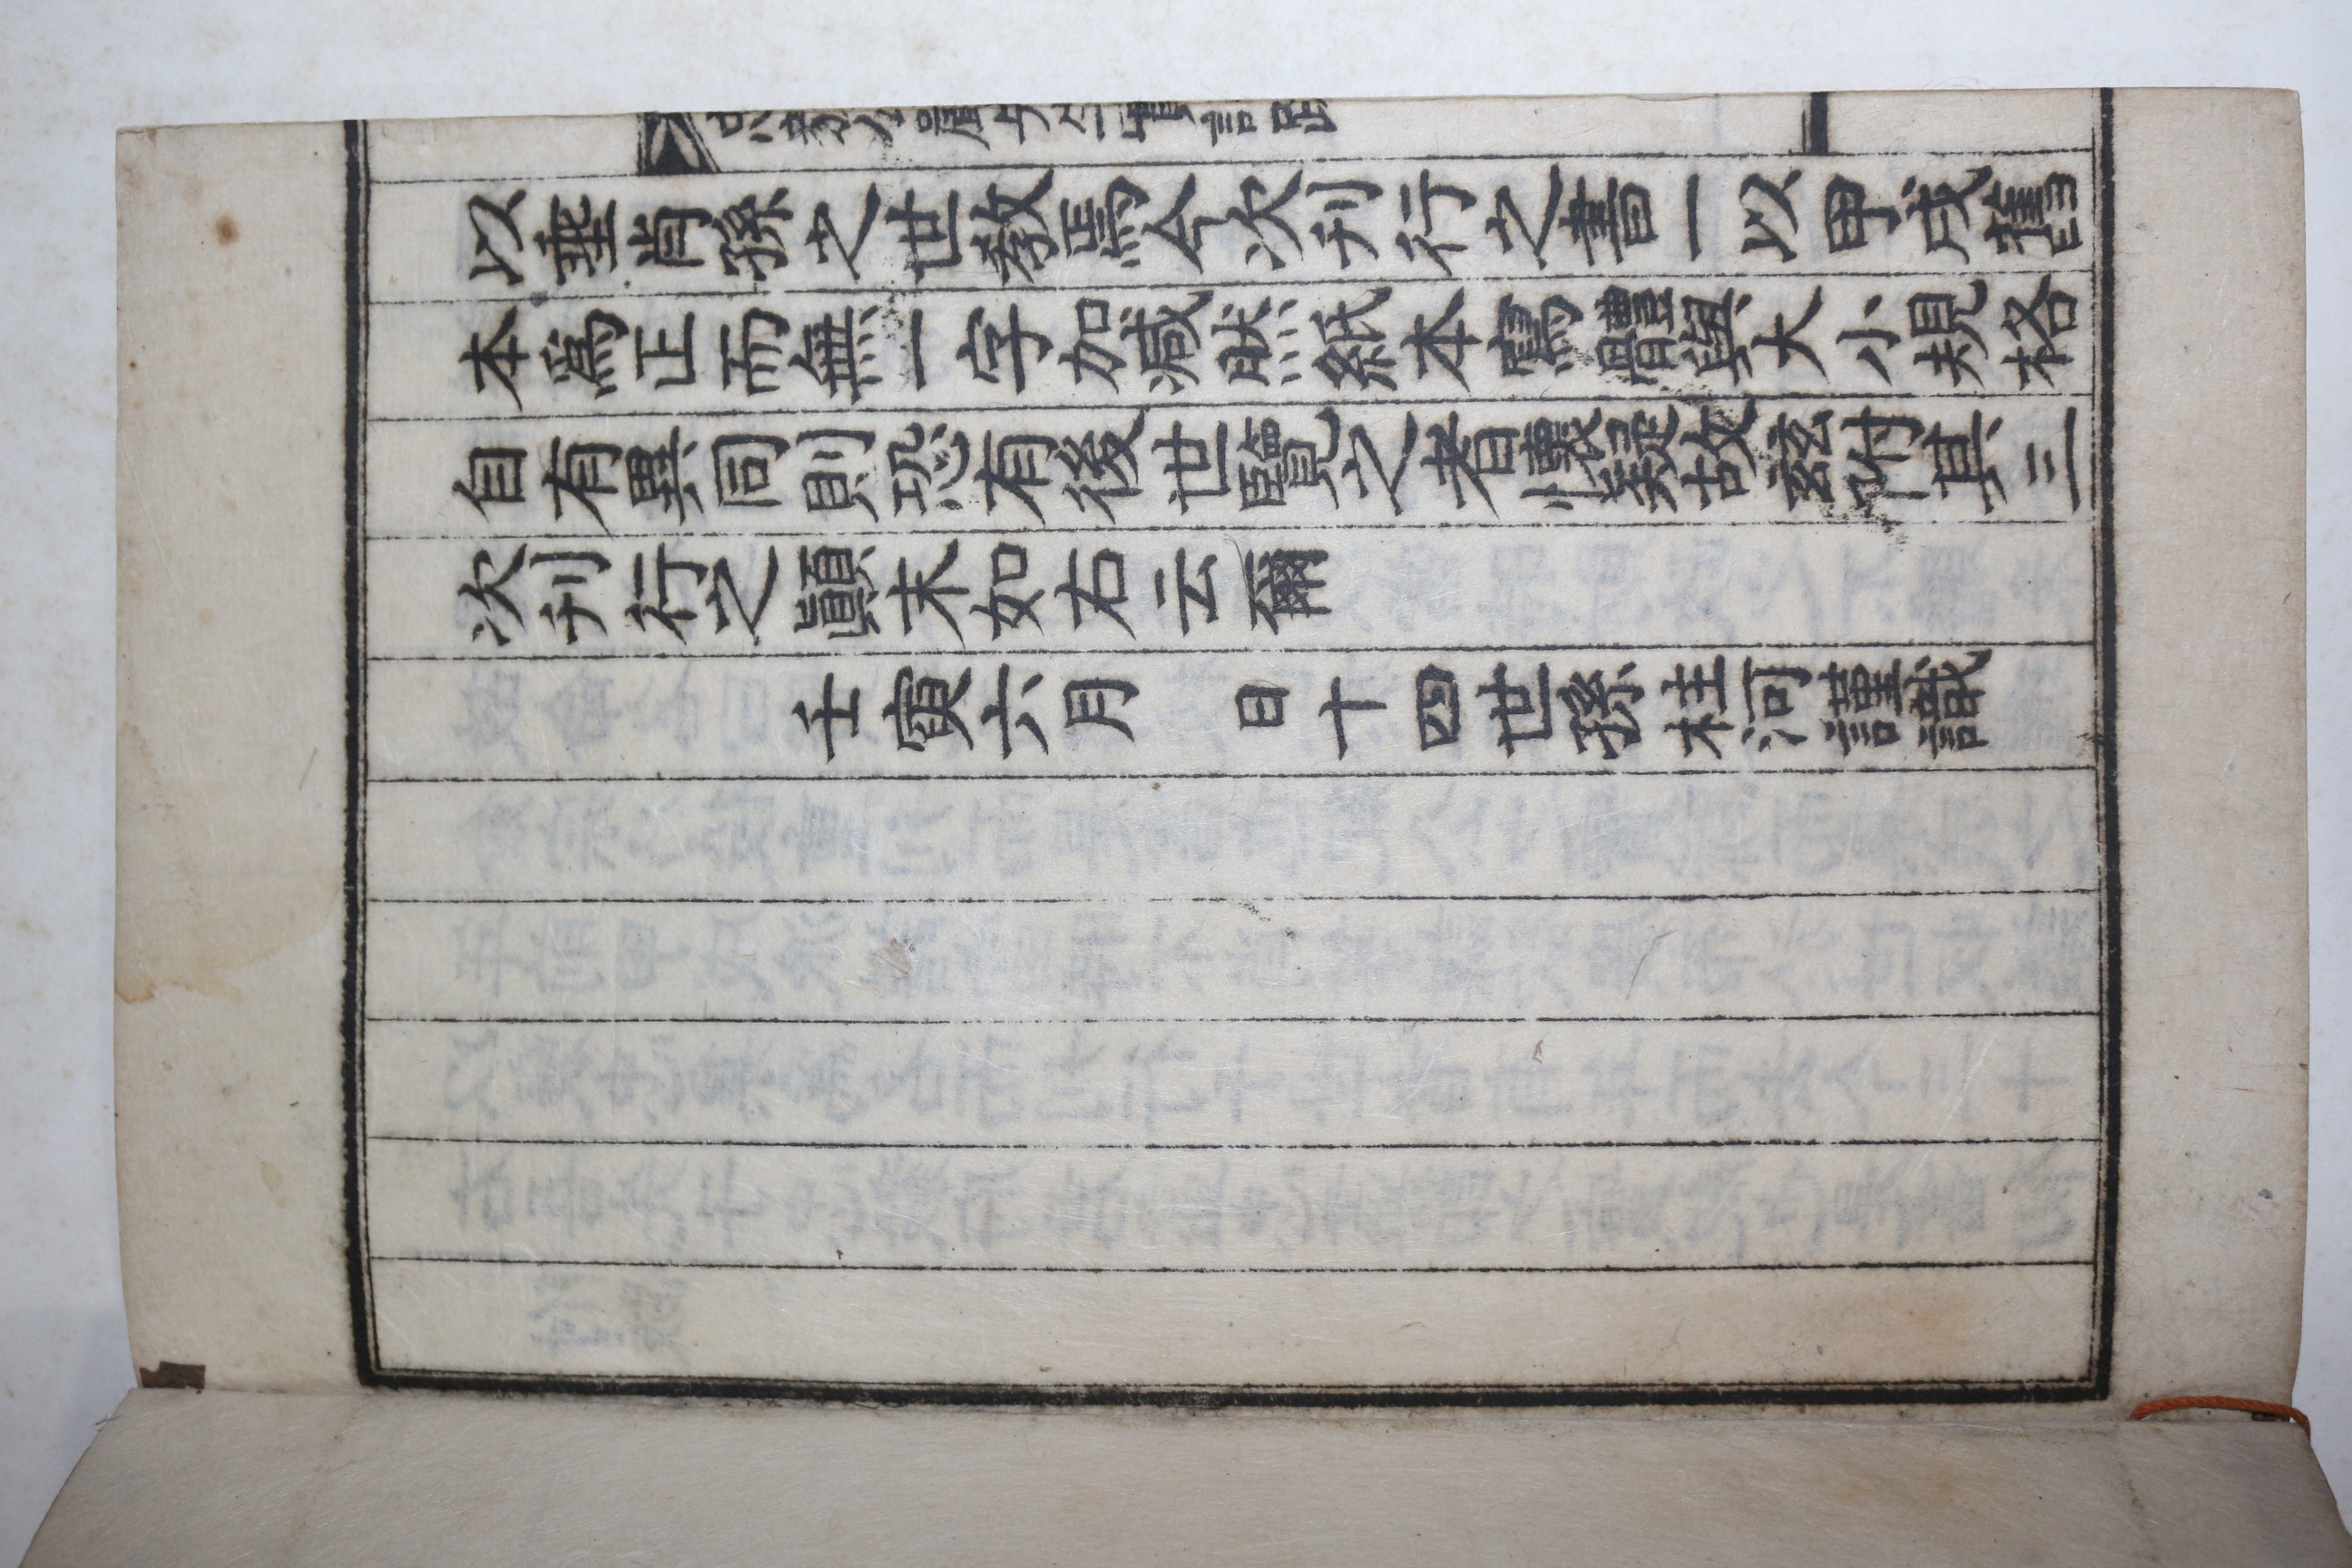 以垂肖孫之世教焉今次刊行之書一以甲戌舊
本爲正而無一字加减然紙本寫體與大小規格
自有異同則恐有後世覽之者懷疑故玆附其三
次刊行之顚末如右云爾
壬寅六月 日十四世孫桂河謹識